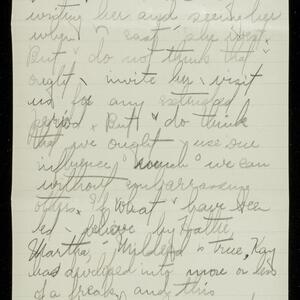 writing her and seeing her
when I east
But I do not think that
ought invite her visit
us for any extended
period. But I do think
that we ought use our
influence much we can
without embarrassing
others. If what I have been
led believe by Hattie,
Martha, Mildred is true, Kay
has developed into more or less
of a freak, and this